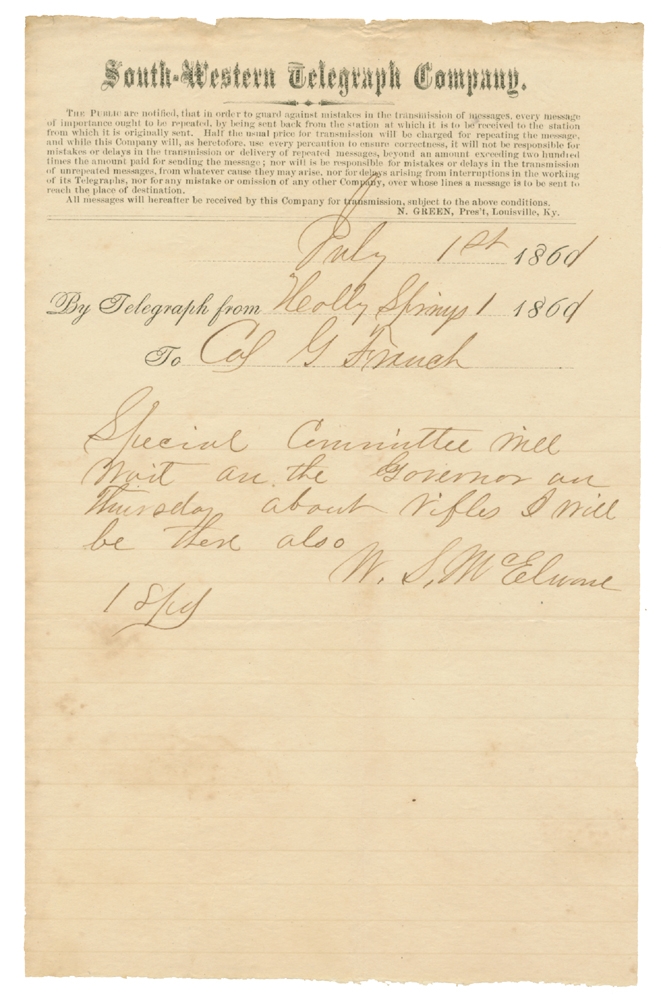 South-Western Telegraph Company.
THE PUBLIC are notified, that in order to guard against mistakes in the transmission of messages, every message
of importance ought to be repeated, by being sent back from the station at which it is to be received to the station
from which it is originally sent. Half the usual price for transmission will be charged for repeating the message,
and while this Company will, as heretofore, use every percaution to ensure correctness, it will not be responsible for
mistakes or delays in the transmission or delivery of repeated messages, beyond an amount exceeding two hundred
times the amount paid for sending the message; nor will is be responsible for mistakes or delays in the transmission
of unrepeated messages, from whatever cause they may arise, nor for delays arising from interruptions in the working
of its Telegraphs, nor for any mistake or omission of any other Company, over whose lines a message is to be sent to
reach the place of destination.
All messages will hereafter be received by this Company for transmission, subject to the above conditions.
N. GREEN, Pres't, Louisville, Ky.
July 1st 1861
By Telegraph from Holly Springs 1 1861
To Col G
Special Committee will
wait on the Governor on
Thursday about rifles I will
be there also
W. S. McElwane